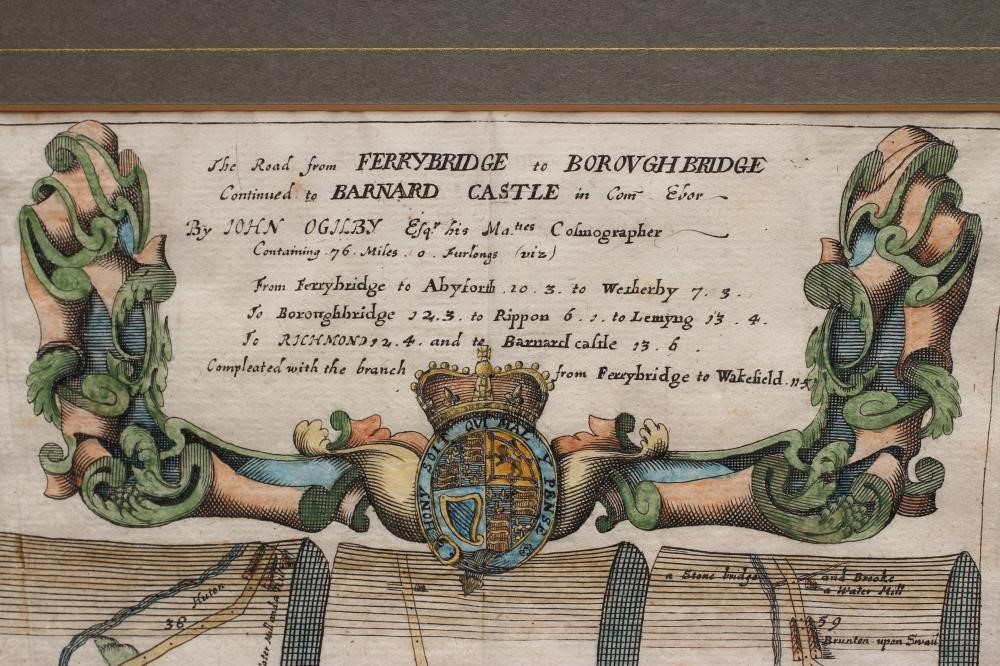 The Road from FERRYBRIDGE to BOROVGHBRIDGE
Continued to BARNARD CASTLE in Com Ebor
By IOHN OGILBY Esqr his Maties Cosmographer
Containing 76 Miles 0 Furlongs (viz)
From Ferrybridge to Abyforth 10.3. to Wetherby 7.3.
To Boroughbridge 12.3. to Rippon 6.1. to Lemyng 13.4.
To RICHMOND 12.4. and to Barnard castle 13.6
Compleated with the branch from Ferrybridge to Wakefield
HONY SOIT QVI MAL Y PENSE
Huton
38
a Stone bridge and Brooke
a Water Mill
59
Brunton upon Swail